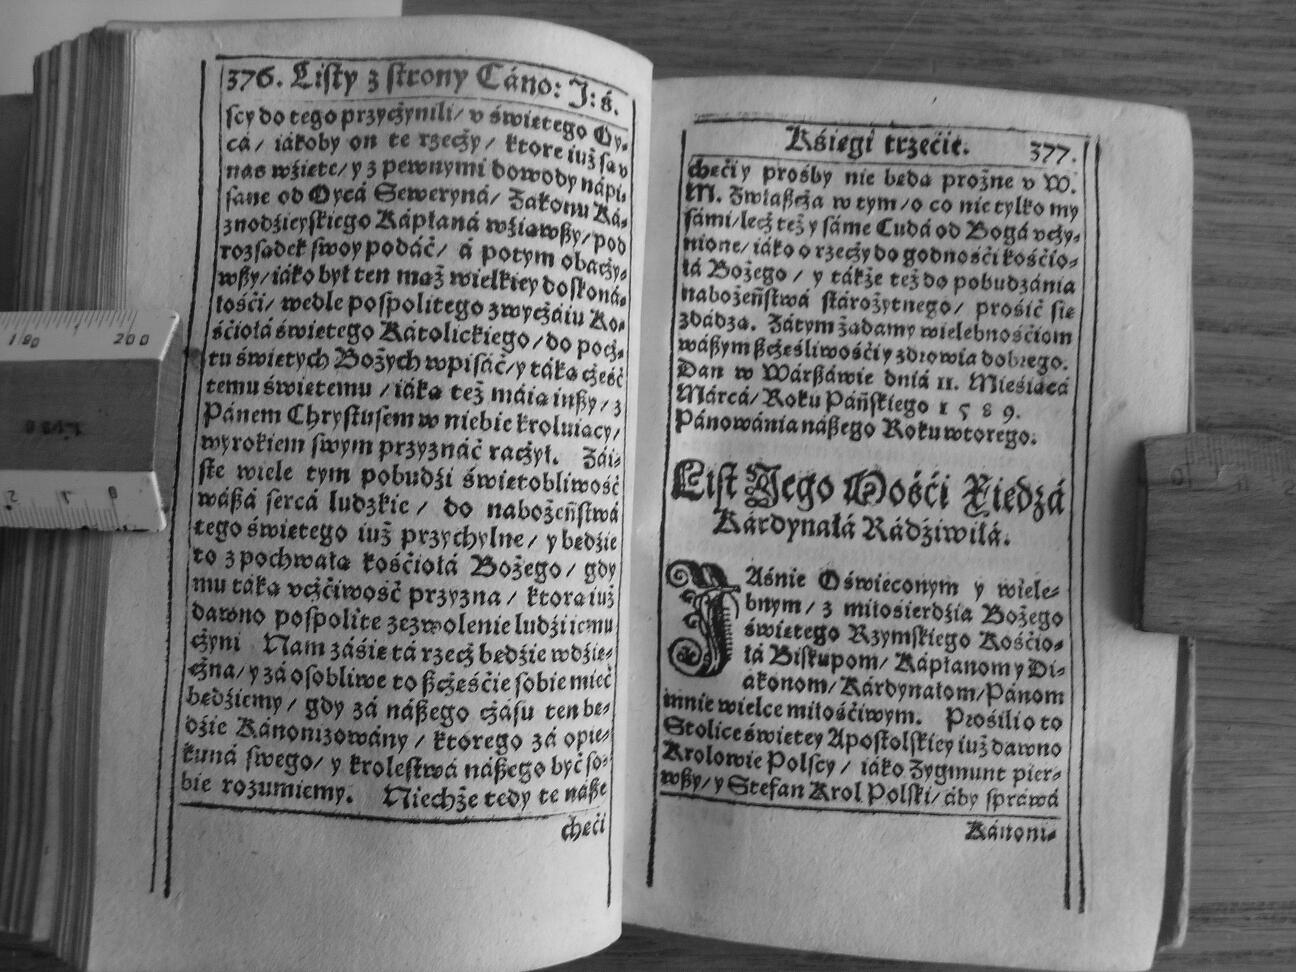 376. Listy z strony Cáno: J: ś.
scy do tego przyczynili/ v świetego Oy-
cá/ iákoby on te rzeczy/ ktore iuż są v
nas wźiete/ y z pewnymi dowody nápi-
sane od Oycá Seweryná/ Zakonu Ká-
znodźieyskiego Kápłaná wźiąwszy/ pod
rozsądek swoy podáć/ á potym obaczy-
wszy/ iáko był ten mąż wielkiey doskoná-
łośći/ wedle pospolitego zwyczáiu Ko-
śćiołá świetego Kátolickiego/ do pocz-
tu świetych Bożych wpisáć/ y táką cześć
temu świetemu/ iáką też máią inszy/ z
Pánem Chrystusem w niebie kroluiący/
wyrokiem swym przyznáć raczył. Zái-
ste wiele tym pobudźi świetobliwość
wászá sercá ludzkie/ do nabożeństwá
tego świetego iuż przychylne/ y bedźie
to z pochwałą kośćiołá Bożego/ gdy
mu táką vczćiwość przyzna/ ktorą iuż
dawno pospolite zezwolenie ludźi iemu
czyni Nam záśie tá rzecz bedźie wdźie-
czna/ y zá osobliwe to szcześćie sobie mieć
bedźiemy/ gdy zá nászego czásu ten be-
dźie Kánonizowány/ ktorego zá opie-
kuná swego/ y krolestwá nászego być so-
bie rozumiemy. Niechże tedy te násze
cheći
Kśiegi trzećie. 377.
cheći y prośby nie bedą prożne v W.
M. Zwłaszczá w tym/ o co nie tylko my
sámi/ lecz też y sáme Cudá od Bogá vczy-
nione/ iáko o rzeczy do godnośći kośćio-
łá Bożego/ y tákże też do pobudzánia
nabożeństwá stárożytnego/ prośić sie
zdádzą. Zátym żądamy wielebnośćiom
wászym szcześliwośći y zdrowia dobrego.
Dan w Wárszáwie dniá 11. Mieśiącá
Márcá/ Roku Páńskiego 1589.
Pánowánia nászego Roku wtorego.
List Jego Mośći Xiedzá
Kárdynałá Rádźiwiłá.
JAśnie Oświeconym y wiele-
bnym/ z miłosierdźia Bożego
świetego Rzymskiego Kośćio-
łá Biskupom/ Kápłanom y Di-
akonom/ Kárdynałom/ Pánom
mnie wielce miłośćiwym. Prośili o to
Stolice świetey Apostolskiey iuż dawno
Krolowie Polscy/ iáko Zygmunt pier-
wszy/ y Stefan Krol Polski/ áby spráwá
Kánoni-
190 200
0 1 2
10